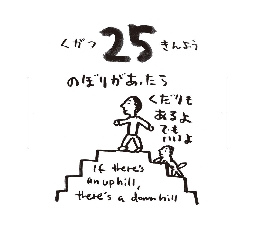 くがつ 25 きんよう
のぼりがあったら
くだりも
あるよ
でも
いいよ
If there's
an uphill,
there's a downhill